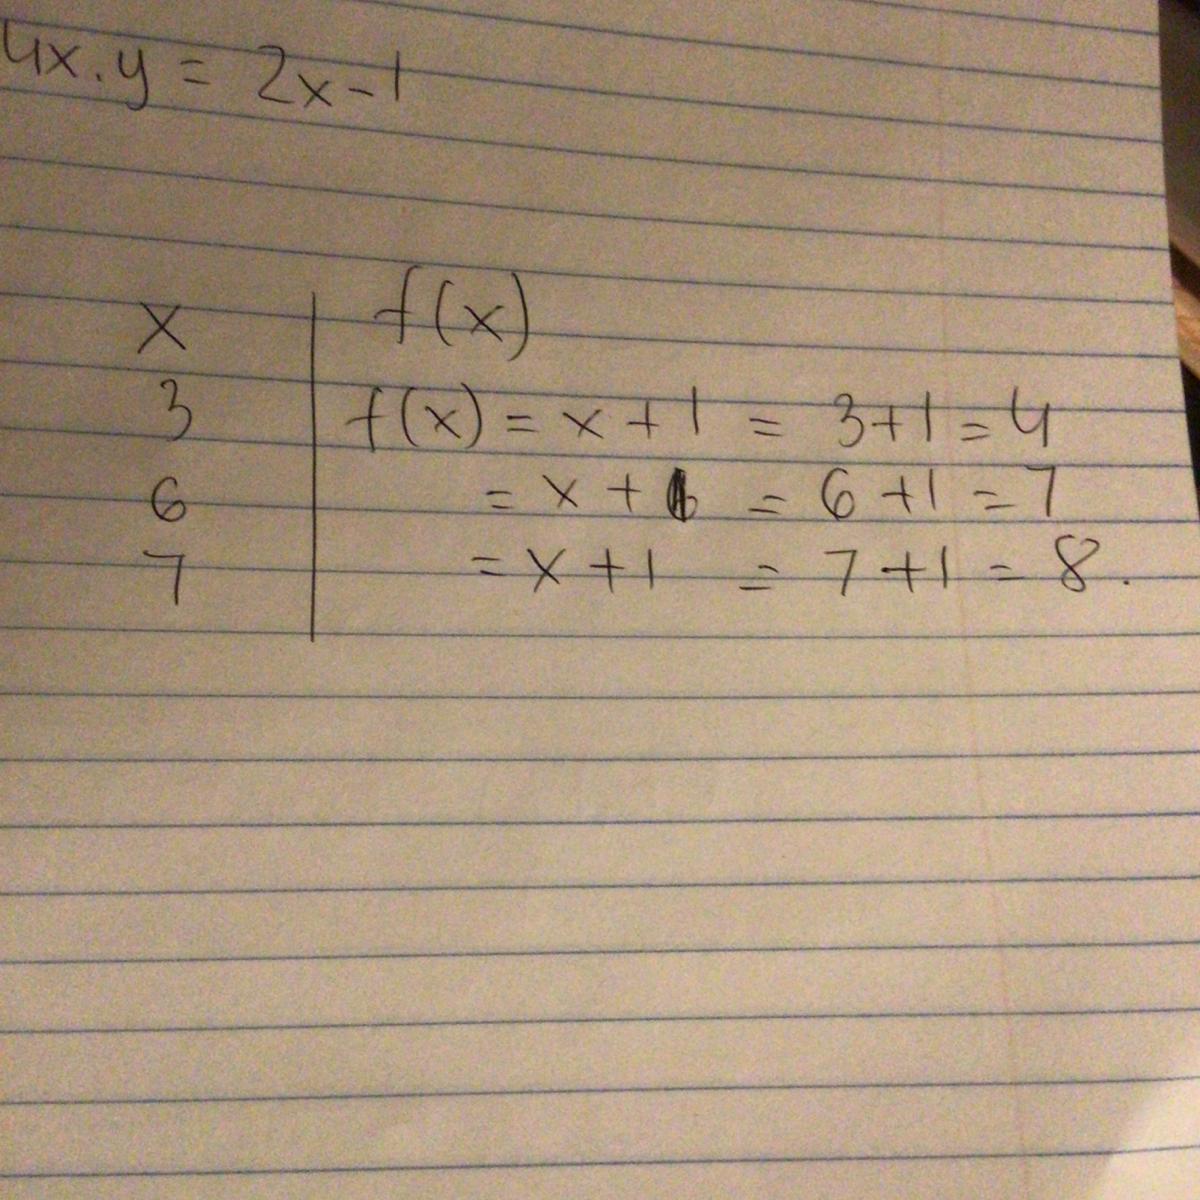 4x.y = 2x-1
x f(x)
3 f(x) = x + 1 = 3+1 = 4
6 = x + 1 = 6 +1 = 7
7 = x +1 = 7+1 = 8.